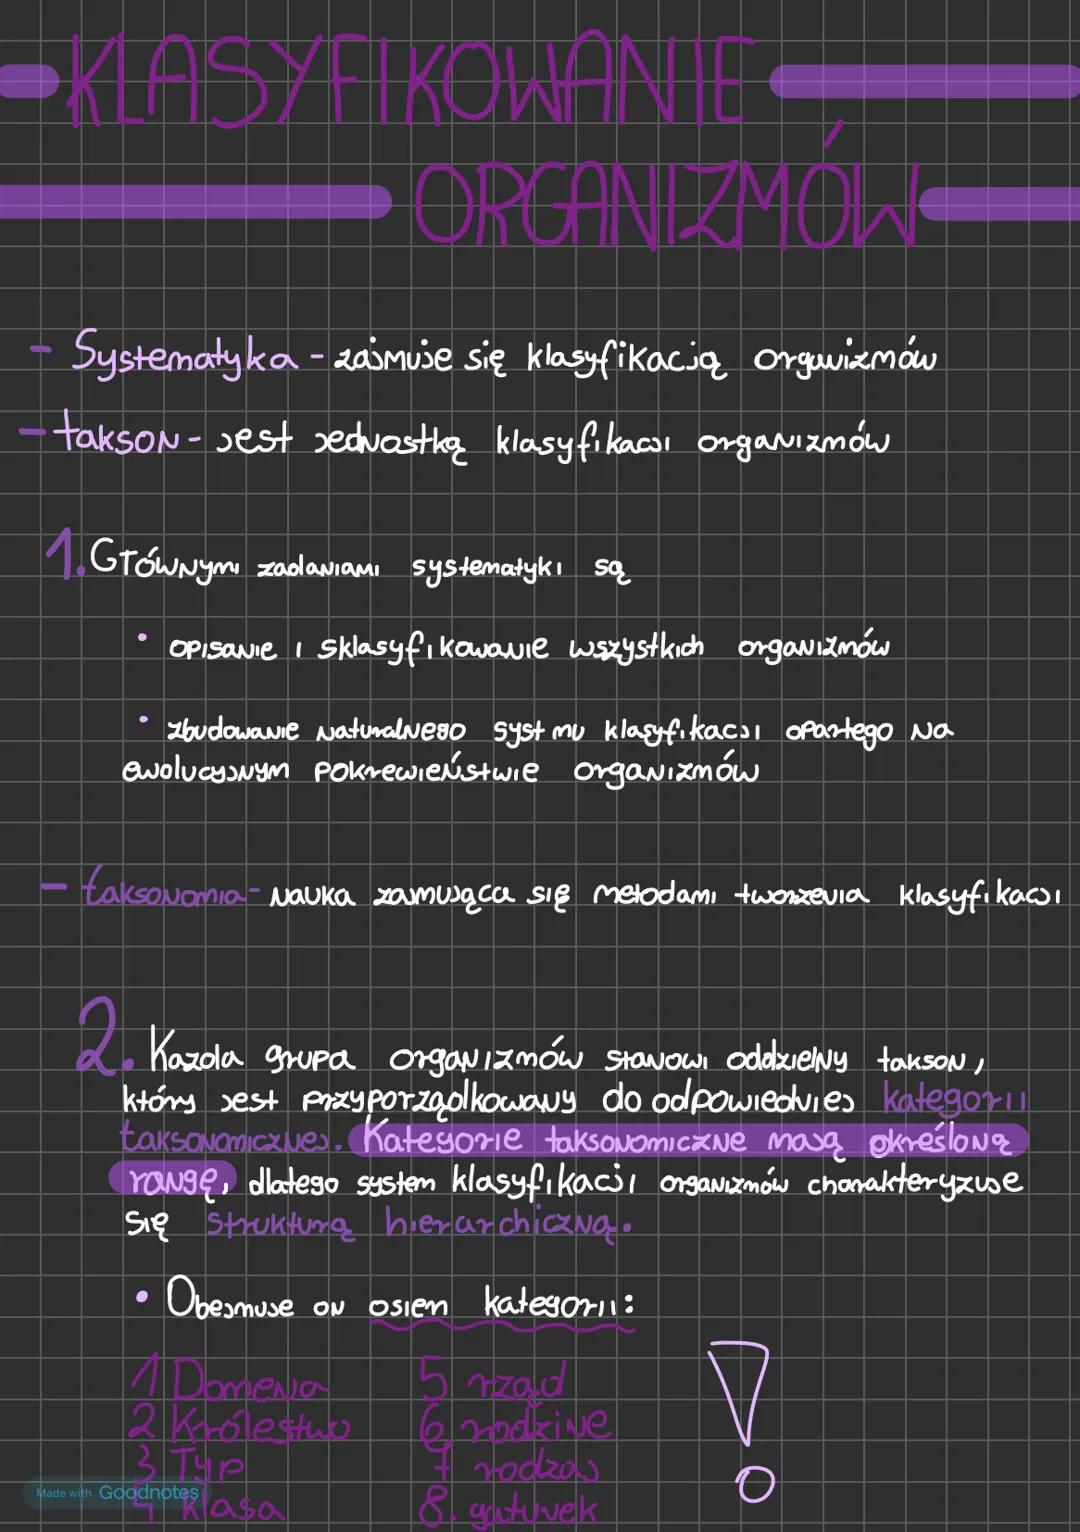 KLASYFIKOWANIE
ORGANIZMÓW
- Systematyka - zajmuje się klasyfikacją organizmów
- takson - jest jednostką klasyfikacji organizmów
1. Głównymi zadaniami systematyki są
• opisanie i sklasyfikowanie wszystkich organizmów
• zbudowanie naturalnego syst mu klasyfikacji opartego na
ewolucyjnym pokrewieństwie organizmów
- taksonomia - nauka zajmująca się metodami tworzenia klasyfikacji
2. Każda grupa organizmów stanowi oddzielny takson,
który jest przyporządkowany do odpowiedniej kategorii
taksonomicznej. Kategorie taksonomiczne mają określoną
rangę, dlatego system klasyfikacji organizmów charakteryzuje
się strukturą hierarchiczną.
• Obejmuje on osiem kategorii:
1 Domena 5 rząd
2 Królestwo 6 rodzine
3 Typ 7 rodzaj
4 klasa 8. gatunek
!
Made with Goodnotes